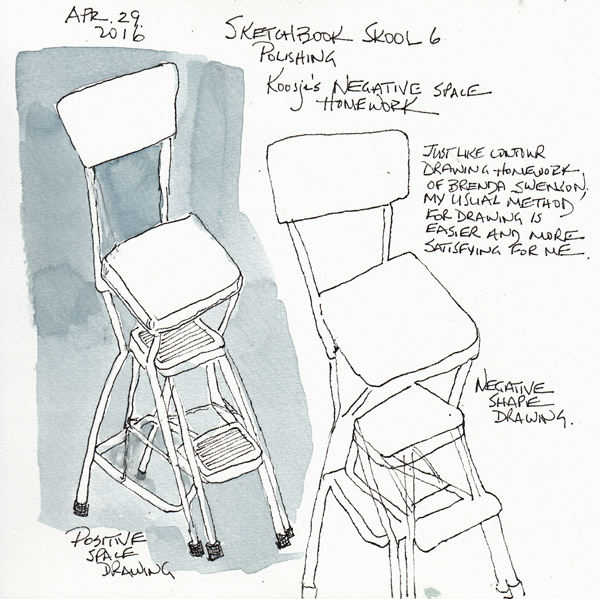 APR. 29.
2016
SKETCHBOOK SKOOL 6
POLISHING
Koosje's NEGATIVE SPACE
HOMEWORK
JUST LIKE CONTOUR
DRAWING HOMEWORK
OF BRENDA SWENSON,
MY USUAL METHOD
FOR DRAWING IS
EASIER AND MORE
SATISFYING FOR ME.
NEGATIVE
SHAPE
DRAWING.
POSITIVE
SPACE
DRAWING